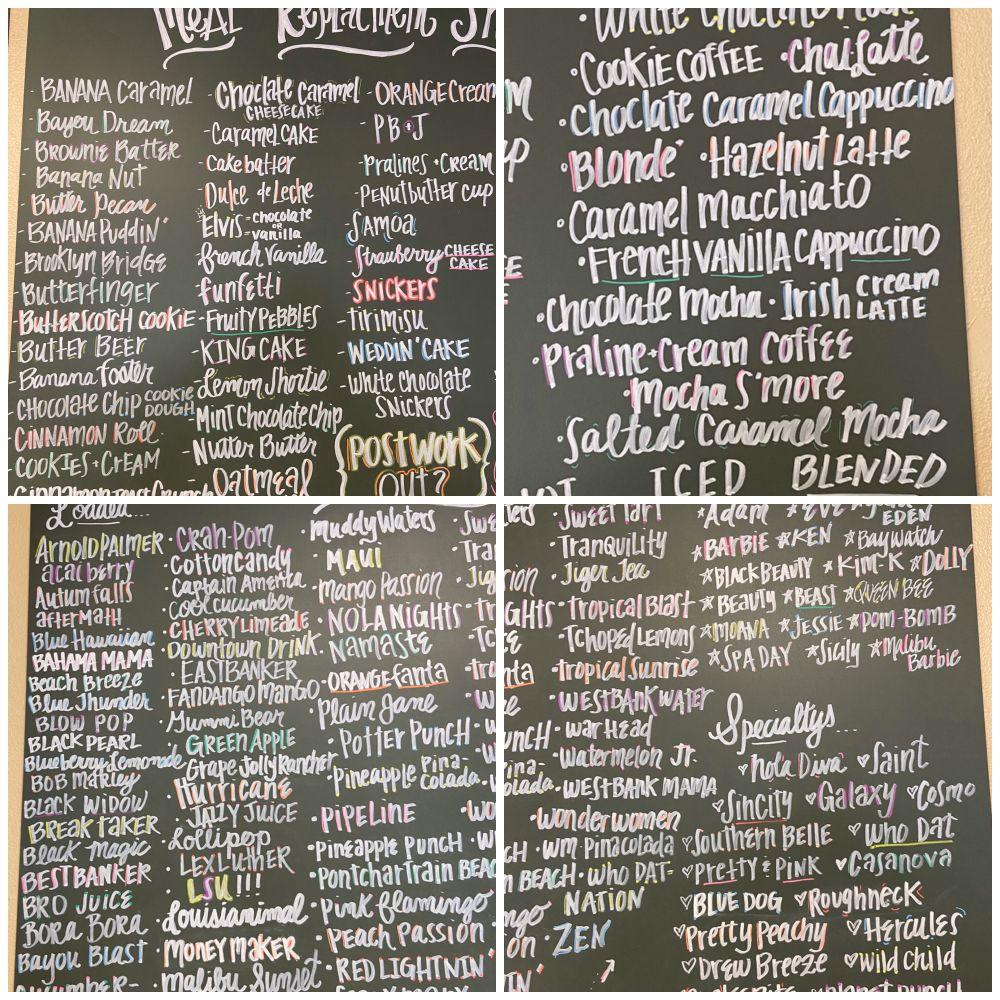 MEAL Replacement
- BANANA Caramel
- Bayou Dream
- BROWNIE BATTER
- Banana Nut
- Butter Pecan
- BANANA PUDDIN'
- Brooklyn BridgE
- Butterfinger
- ButterScotch Cookie
- Butter Beer
- Banana foster
- CHOCOLATE Chip COOKIE DOUGH
- CINNAMON Roll
- COOKIES + CREAM
- Choclate Caramel CHEESECAKE
- Caramel CAKE
- Cake batter
- Dulce de Leche
Elvis - chocolate or vanilla
- french Vanilla
- funfetti
- Fruity PEBBLES
- KING CAKE
- Lemon Shortie
- Mint Chocolate Chip
- Nutter Butter
Oatmeal
- ORANGE Cream
- PB+J
- Pralines + Cream
- PENutbutter cup
- SAMOA
- Strawberry CHEESE CAKE
- SNICKERS
- tirimisu
- WEDDIN' CAKE
- White chocolate Snickers
{POSTWORK OUT?}
· COOKIE COFFEE · Chai Latte
· Choclate Caramel Cappuccino
· Blonde' · Hazelnut Latte
· Caramel Macchiato
· French VANILLA CAPPUCCINO
· Chocolate Mocha · Irish cream LATTE
· Praline + Cream Coffee
· Mocha S'more
· Salted Caramel Mocha
ICED BLENDED
Loaded...
ARNOLD PALMER
acai berry
Autum falls
aftermath
Blue Hawaiian
BAHAMA MAMA
Beach Breeze
Blue Thunder
BLOW POP
BLACK PEARL
Blueberry Lemonade
BOB Marley
BLACK WIDOW
BREAK TAKER
Black magic
BESTBANKER
BRO JUICE
BORA BORA
Bayou Blast
· Cran-Pom
· Cottoncandy
· Captain America
· Cool cucumber
· CHERRY LIMEADE
· Downtown DRINK
· EASTBANKER
· FANDANGO MANGO
· Gummi Bear
· GREEN Apple
· Grape Jolly Rancher
· Hurricane
· JAZZY JUICE
· Lollipop
· LEX LUTHER
· LSU!!!
· Louisianimal
· MONEY MAKER
· Malibu Sunset
· muddy Waters
· MAUI
· mango Passion
· NOLA NIGHTS
· Namaste
· ORANGE fanta
· Plain Jane
· Potter PUNCH
· Pineapple Pina-Colada
· PIPELINE
· Pineapple Punch
· Pontchartrain BEACH
· Pink flamingo
· Peach Passion
· RED LIGHTNIN'
· Sweet Tart
· Tranquility
· Tiger Tea
· Tropical Blast
· Tchoped Lemons
· tropical Sunrise
· WESTBANK WATER
· War Head
· Watermelon Jr.
· WESTBANK MAMA
· Wonder women
· WM Pinacolada
· WHO DAT-NATION
· ZEN
EDEN
☆BARBIE ☆KEN ☆Bay Watch
☆BLACK BEAUTY ☆Kim-K ☆DOLLY
☆BEAUTY ☆BEAST ☆QUEEN BEE
☆MOANA ☆JESSIE ☆POM-BOMB
☆SPA DAY ☆Sicily ☆Malibu Barbie
Specialtys...
♡Nola Diva ♡Saint
♡Sincity ♡Galaxy ♡Cosmo
♡Southern BELLE ♡WHO DAT
♡Pretty & PINK ♡Casanova
♡BLUE DOG ♡Roughneck
♡Pretty Peachy ♡Hercules
♡Drew Breeze ♡wild Child